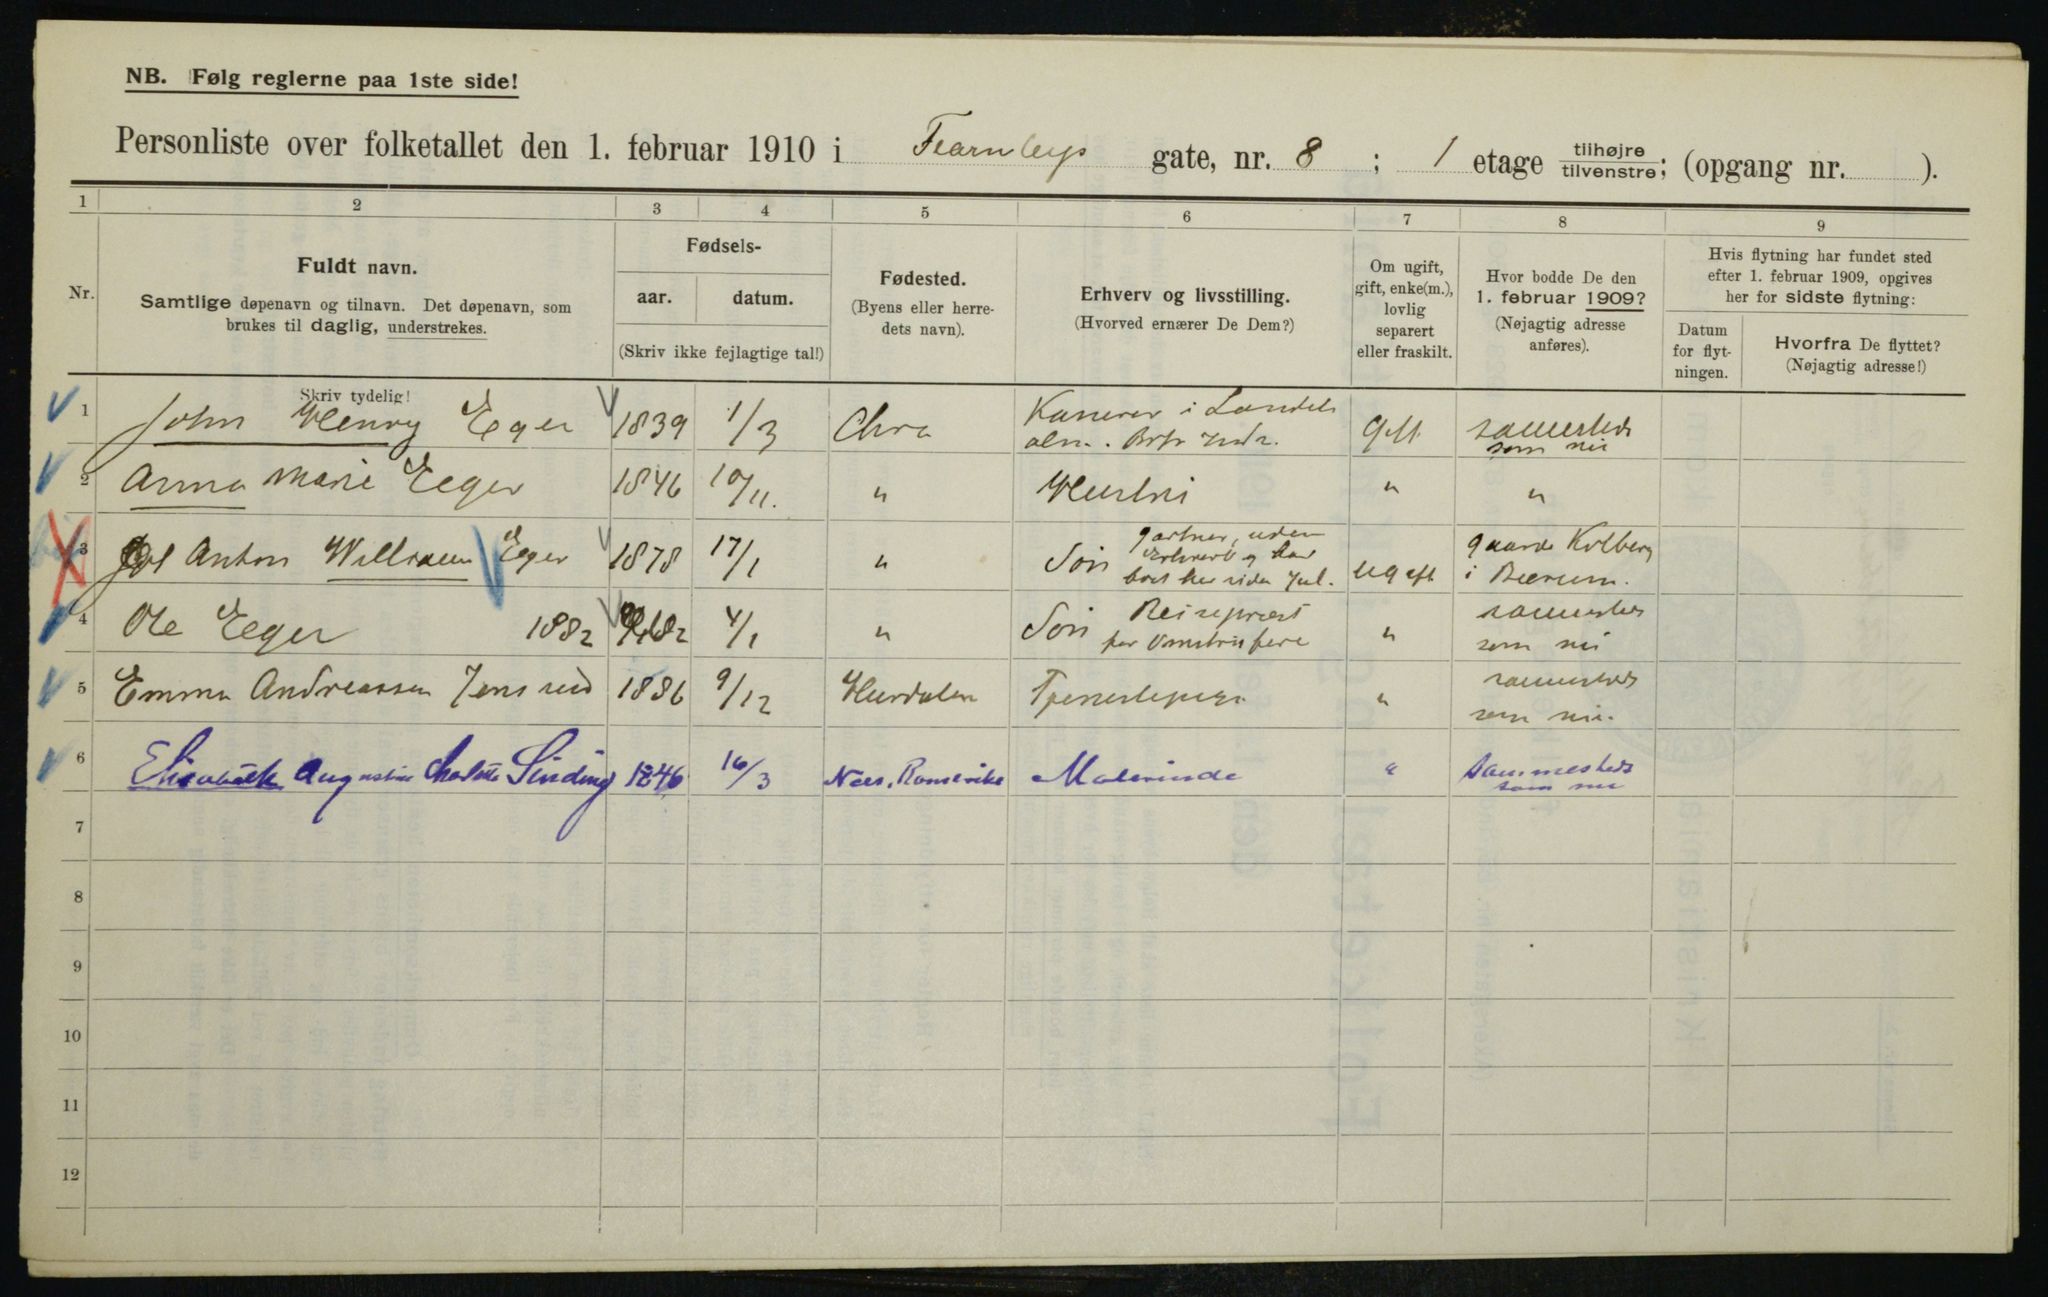 NB. Følg reglerne paa 1ste side!
Personliste over folketallet den 1. februar 1910 i Fearnleys gate, nr. 8 ; 1 etage tilhøjre/tilvenstre; (opgang nr. ).
1 2 3 4 5 6 7 8 9
Nr.
Fuldt navn.
Samtlige døpenavn og tilnavn. Det døpenavn, som
brukes til daglig, understrekes.
Skriv tydelig!
Fødsels-
aar. datum.
(Skriv ikke fejlagtige tal!)
Fødested.
(Byens eller herre-
dets navn).
Erhverv og livsstilling.
(Hvorved ernærer De Dem?)
Om ugift,
gift, enke(m.),
lovlig
separert
eller fraskilt.
Hvor bodde De den
1. februar 1909?
(Nøjagtig adresse
anføres).
Hvis flytning har fundet sted
efter 1. februar 1909, opgives
her for sidste flytning:
Datum
for flyt-
ningen.
Hvorfra De flyttet?
(Nøjagtig adresse!)
1 John Henry Eger 1839 1/3 Chra Kasserer i Landets alm. Gift sammesteds som nu
2 Anna Marie Eger 1846 10/11. " Hustru " "
3 Anton Willraem Eger 1878 17/1 " Søn gartner, uden Erhverv og har bort her siden Jul. ugift gaarde Kolberg i Bærum.
4 Ole Eger 1882 1882 4/1 " Søn " sammesteds som nu
5 Emma Andreassen Jensrud 1886 9/12 Hurdalen Tjenestepige " sammesteds som nu.
6 Elisabeth Augustine Charlotte Sinding 1846 16/3 Nes, Romerike Malerinde " Sammesteds som nu
7
8
9
10
11
12